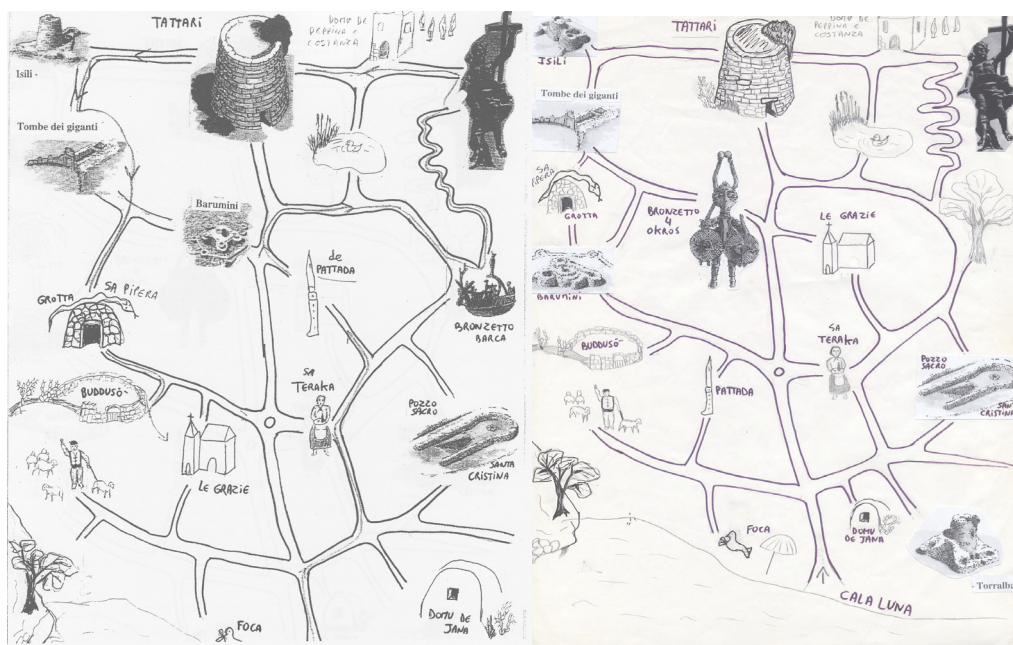 TATTARI
DOMU DE
PEPPINA E
COSTANZA
Isili -
Tombe dei giganti
Barumini
de
PATTADA
GROTTA
SA PIPERA
BRONZETTO
BARCA
SA
TERAKA
BUDDUSÒ
POZZO
SACRO
SANTA
CRISTINA
LE GRAZIE
FOCA
DOMU DE
JANA
TATTARI
DOMU DE
PEPPINA E
COSTANZA
ISILI
Tombe dei giganti
SA
PIPERA
GROTTA
BRONZETTO
4
OKROS
LE GRAZIE
BARUMINI
SA
TERAKA
BUDDUSÒ
PATTADA
POZZO
SACRO
SANTA
CRISTINA
FOCA
DOMU
DE JANA
- Torralba
CALA LUNA